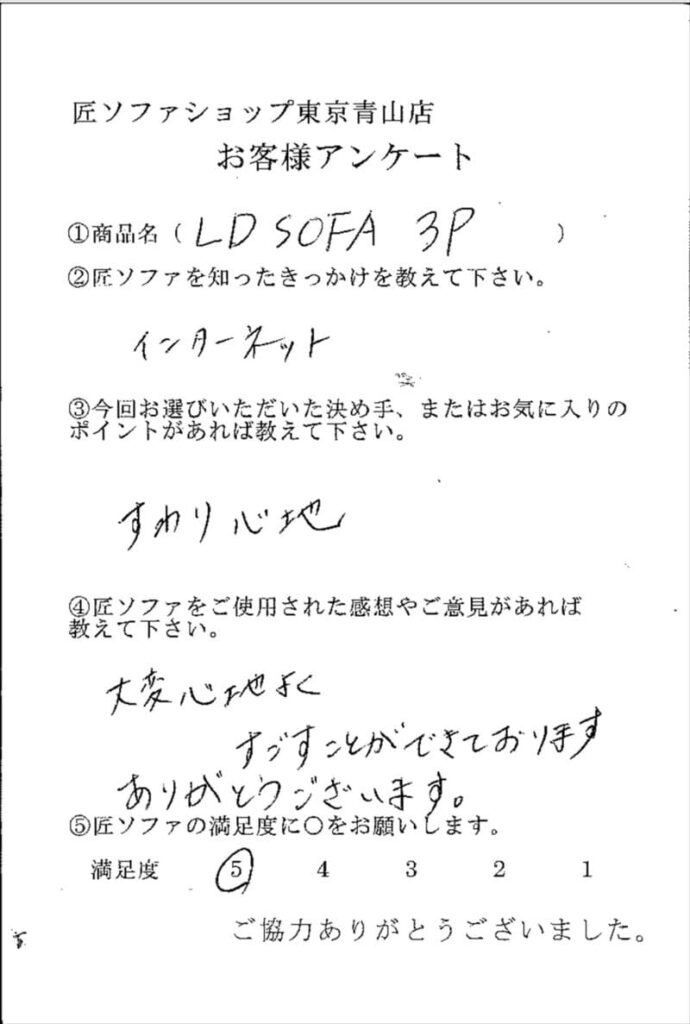 匠ソファショップ東京青山店
お客様アンケート
①商品名（ LD SOFA 3P ）
②匠ソファを知ったきっかけを教えて下さい。
インターネット
③今回お選びいただいた決め手、またはお気に入りの
ポイントがあれば教えて下さい。
すわり心地
④匠ソファをご使用された感想やご意見があれば
教えて下さい。
大変心地よく
すごすことができております
ありがとうございます。
⑤匠ソファの満足度に〇をお願いします。
満足度 5 4 3 2 1
ご協力ありがとうございました。